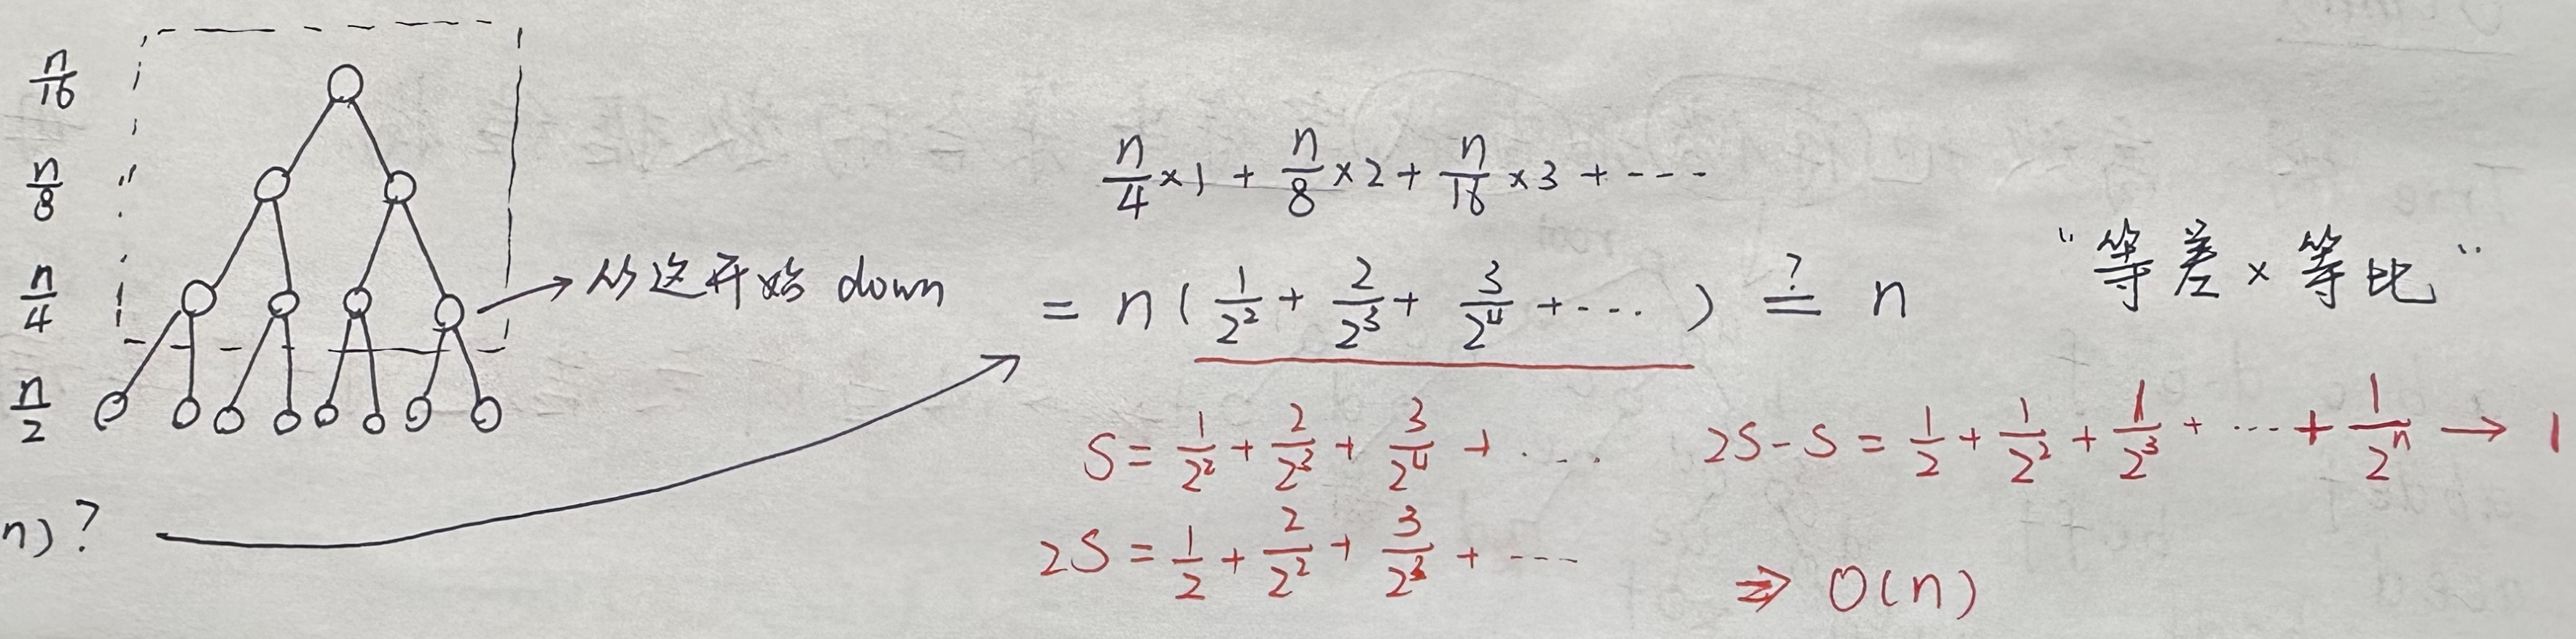 n/16
n/8
n/4
n/2
从这开始 down
n)?
n/4 × 1 + n/8 × 2 + n/16 × 3 + ---
= n ( 1/2² + 2/2³ + 3/2⁴ + --- ) ≟ n
"等差 × 等比"
S = 1/2² + 2/2³ + 3/2⁴ + ...
2S = 1/2 + 2/2² + 3/2³ + ---
2S - S = 1/2 + 1/2² + 1/2³ + ... + 1/2ⁿ → 1
⇒ O(n)